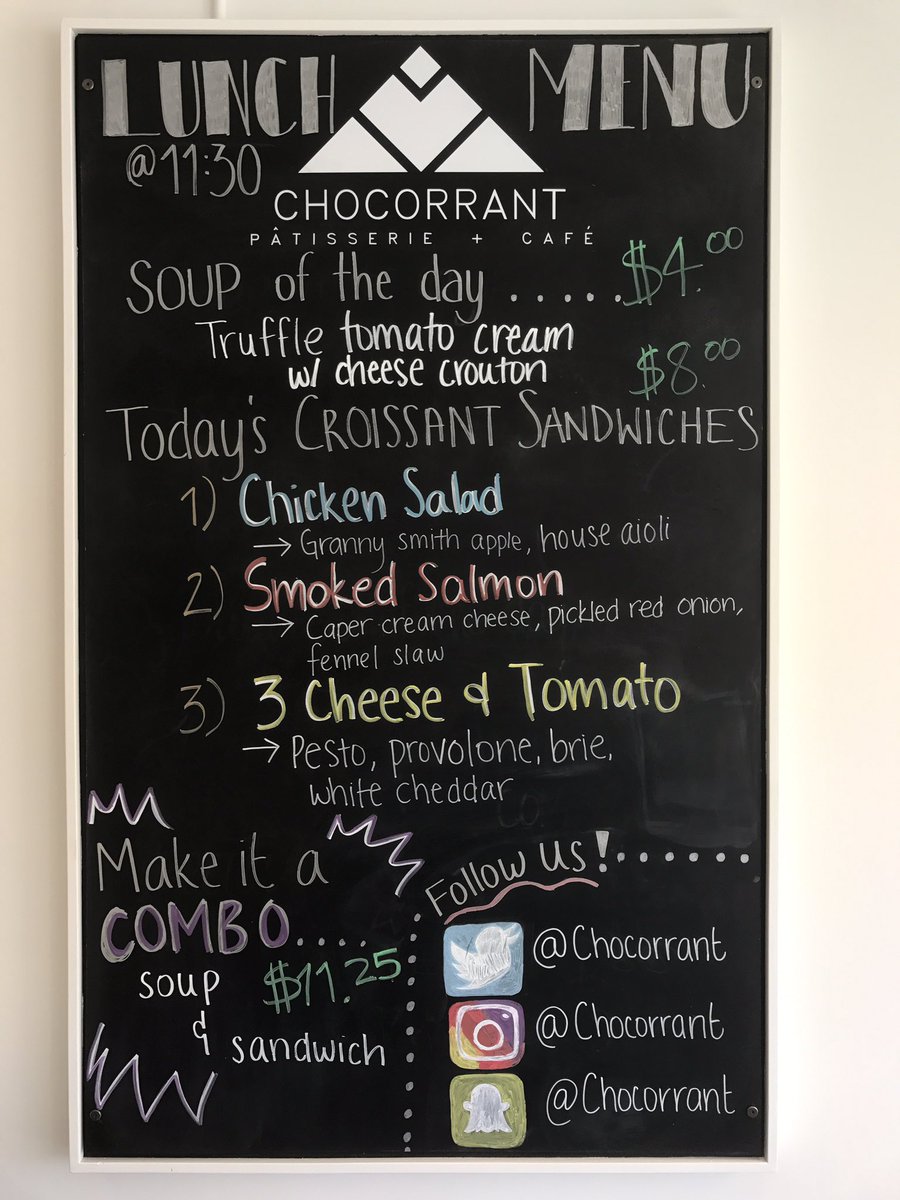 LUNCH MENU
@11:30
CHOCORRANT
PÂTISSERIE + CAFÉ
SOUP of the day ..... $4.00
Truffle tomato cream
w/ cheese crouton
$8.00
Today's CROISSANT SANDWICHES
1) Chicken Salad
→ Granny smith apple, house aioli
2) Smoked Salmon
→ Caper cream cheese, pickled red onion,
fennel slaw
3) 3 Cheese & Tomato
→ Pesto, provolone, brie,
white cheddar
Make it a
COMBO....
$11.25
soup
&
sandwich
Follow us!.......
@Chocorrant
@Chocorrant
@Chocorrant